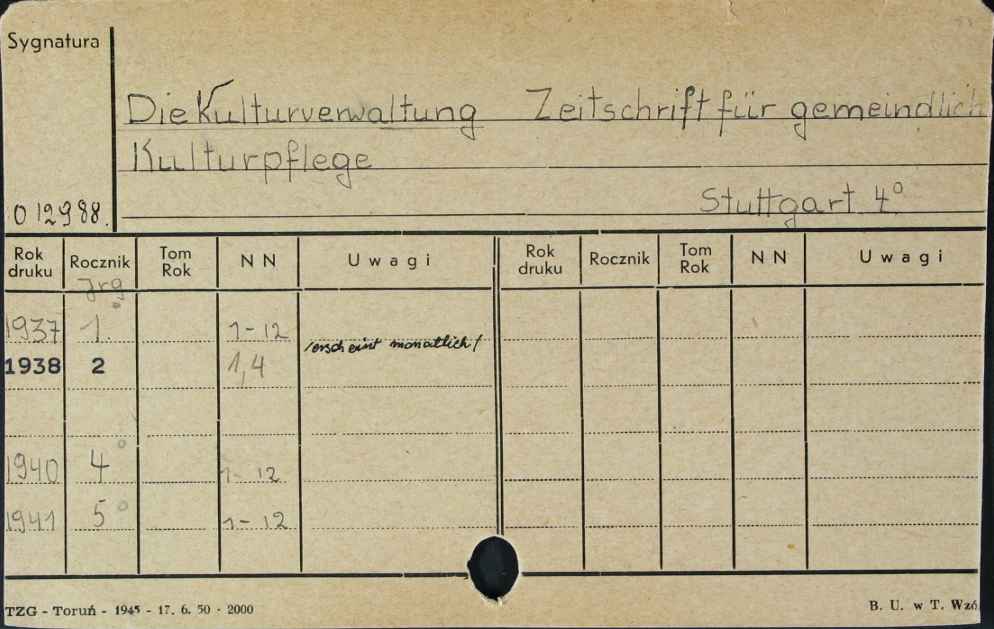 Sygnatura
Die Kulturverwaltung Zeitschrift für gemeindlich
Kulturpflege
O 12988. Stuttgart 4°
Rok druku Rocznik Tom Rok NN Uwagi Rok druku Rocznik Tom Rok NN Uwagi
Jrg
1937 1. 1-12 /erscheint monatlich/
1938 2 1,4
1940 4° 1-12
1941 5° 1-12
TZG - Toruń - 1945 - 17. 6. 50 - 2000 B. U. w T. Wzó